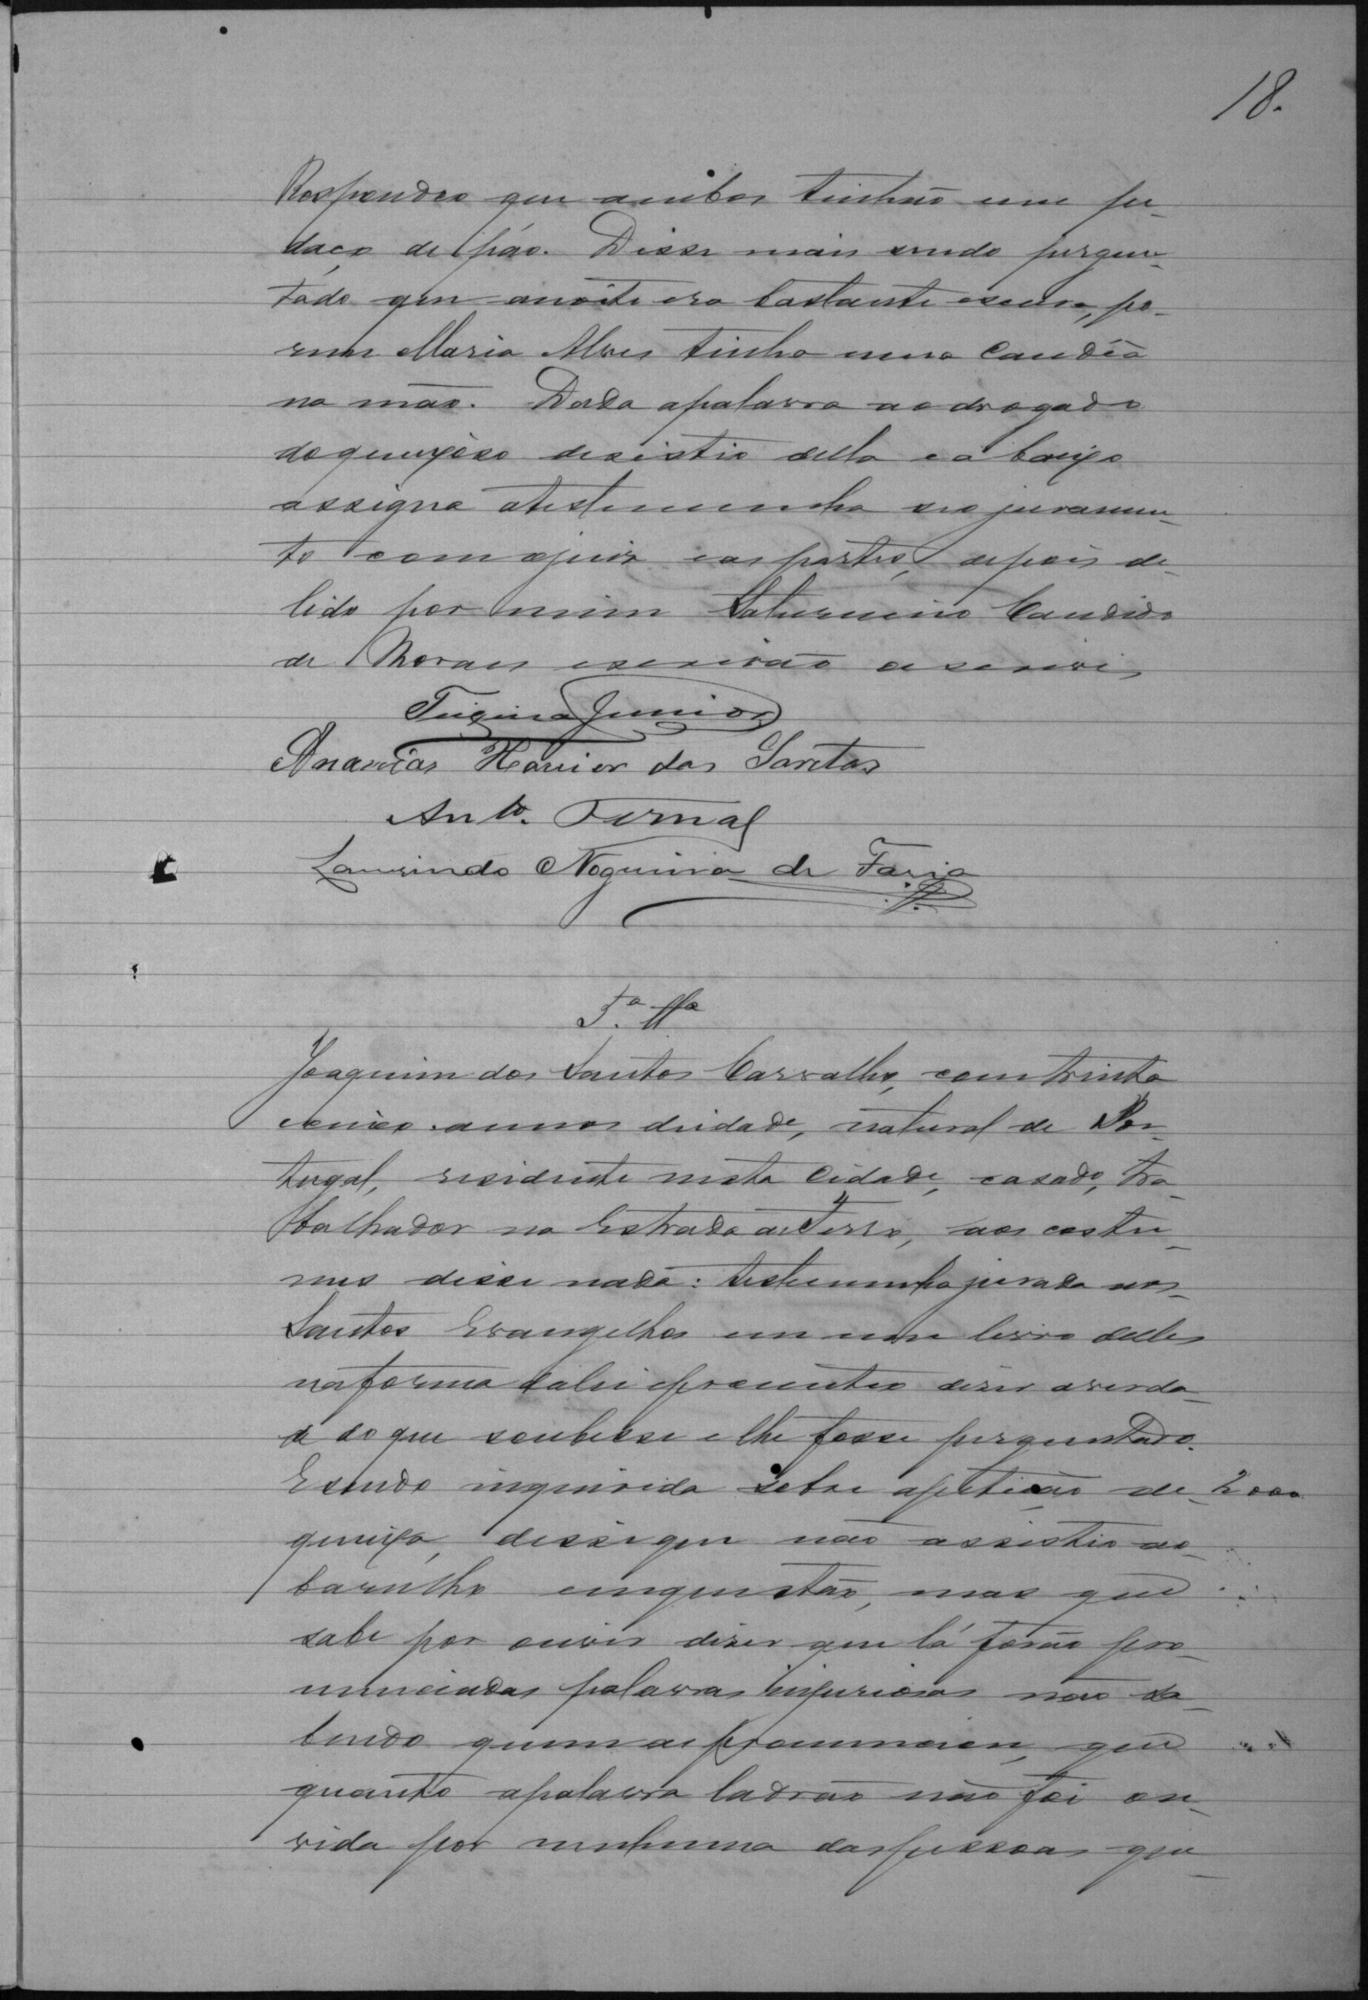 18.
Respondeo que ambos tinhão um pe-
daço de páo. Disse mais sendo pergun-
tado que anoite era bastante escura, po-
rem Maria Alves tinha uma Candêa
na mão. Dada apalavra ao advogado
doqueixoso desistio della e a baixo
assigna atestemunha seo juramen-
to com ojuiz eas partes, depois de
lido por mim Saturnino Candido
de Moraes escrivão o escrevi
Junior
Ananias Xavier dos Santos
Anto. Fernal
Laurindo Nogueira de Faria
5.a Ta
Joaquim dos Santos Carvalho, com trinta
cinco annos deidade, natural de Por-
tugal, residente nesta Cidade, casado, tra-
balhador na Estrada deFerro, aos costu-
mes disse nada: testemunha jurada nos
Santos Evangelhos em um livro delles
naforma dalei eprometeo dizer averda-
de do que soubesse e lhe fosse perguntado.
Esendo inquirida sobre apetição de 2000
queixa, disseque não assistio ao
barulho emquestão, mas que
sabe por ouvir dizer que lá forão pro-
nunciadas palavras injuriosas não sa-
bendo quem as pronunciou, que
quanto apalavra ladrão não foi ou-
vida por nenhuma daspessoas que